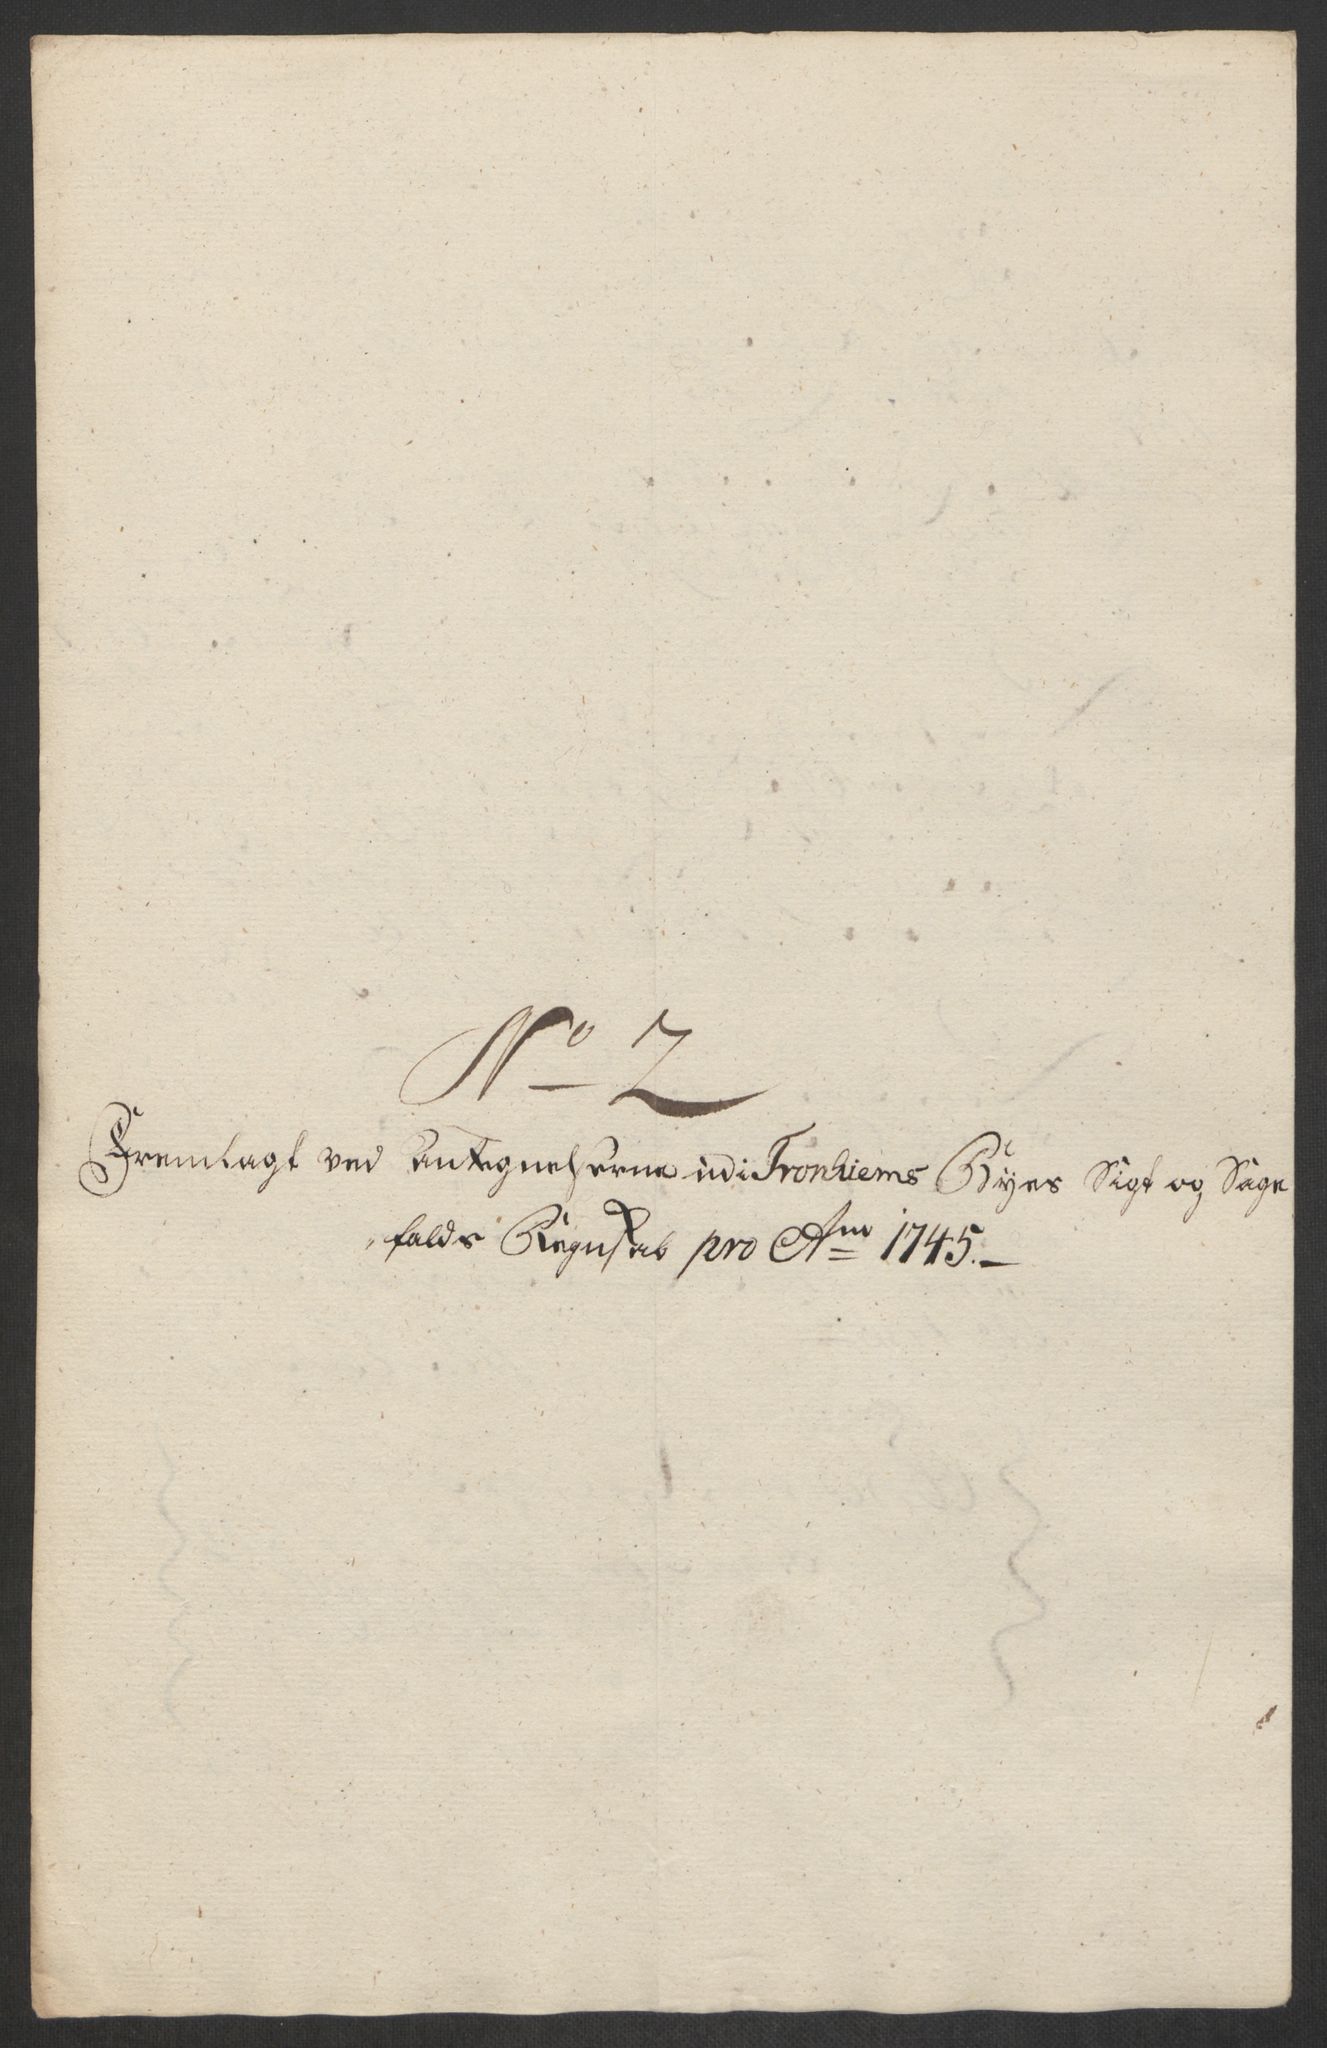 No 2
Fremlagt ved Antegnelserne udi Tronhiems Byes Sigt og Sage
falds Regnskab pro Ano 1745.